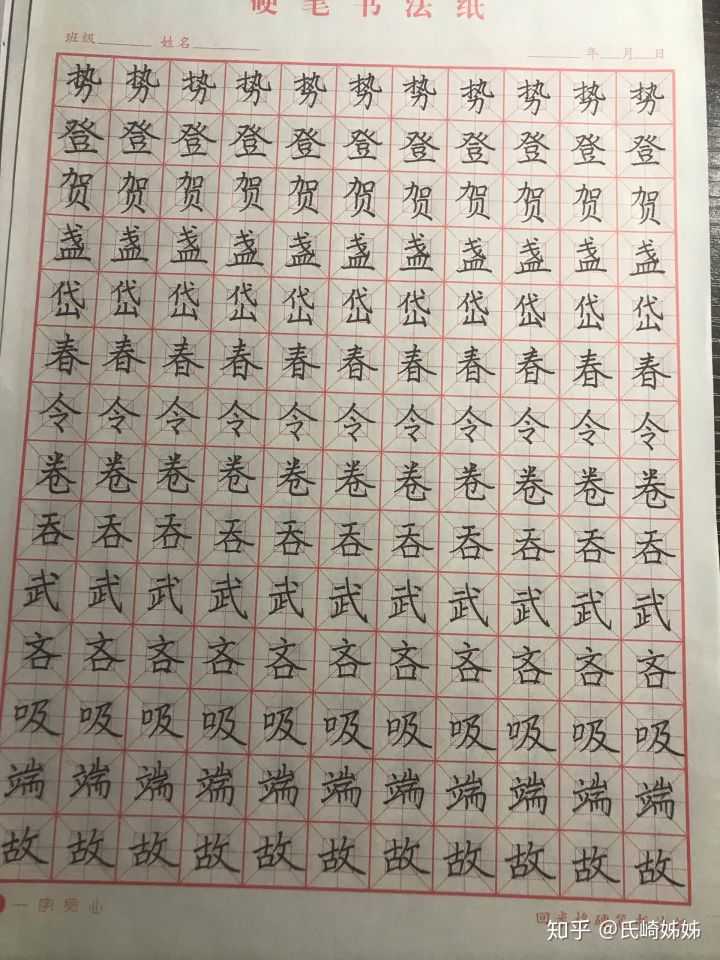 硬笔书法纸
班级 姓名 年 月 日
势势势势势势势势势势势
登登登登登登登登登登登
贺贺贺贺贺贺贺贺贺贺贺
盏盏盏盏盏盏盏盏盏盏盏
岱岱岱岱岱岱岱岱岱岱岱
春春春春春春春春春春春
令令令令令令令令令令令
卷卷卷卷卷卷卷卷卷卷卷
吞吞吞吞吞吞吞吞吞吞吞
武武武武武武武武武武武
吝吝吝吝吝吝吝吝吝吝吝
吸吸吸吸吸吸吸吸吸吸吸
端端端端端端端端端端端
故故故故故故故故故故故
硬笔
知乎 @氏崎姊姊